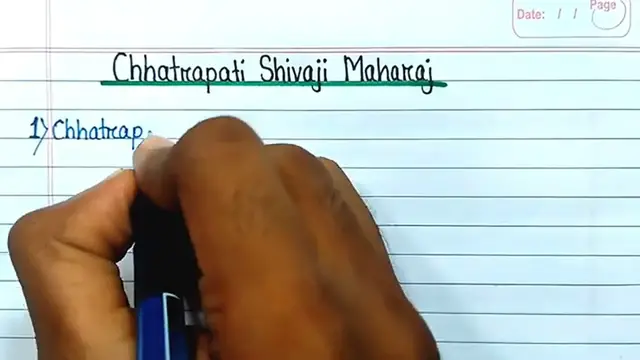 Page
Date: / /
Chhatrapati Shivaji Maharaj
1) Chhatrap